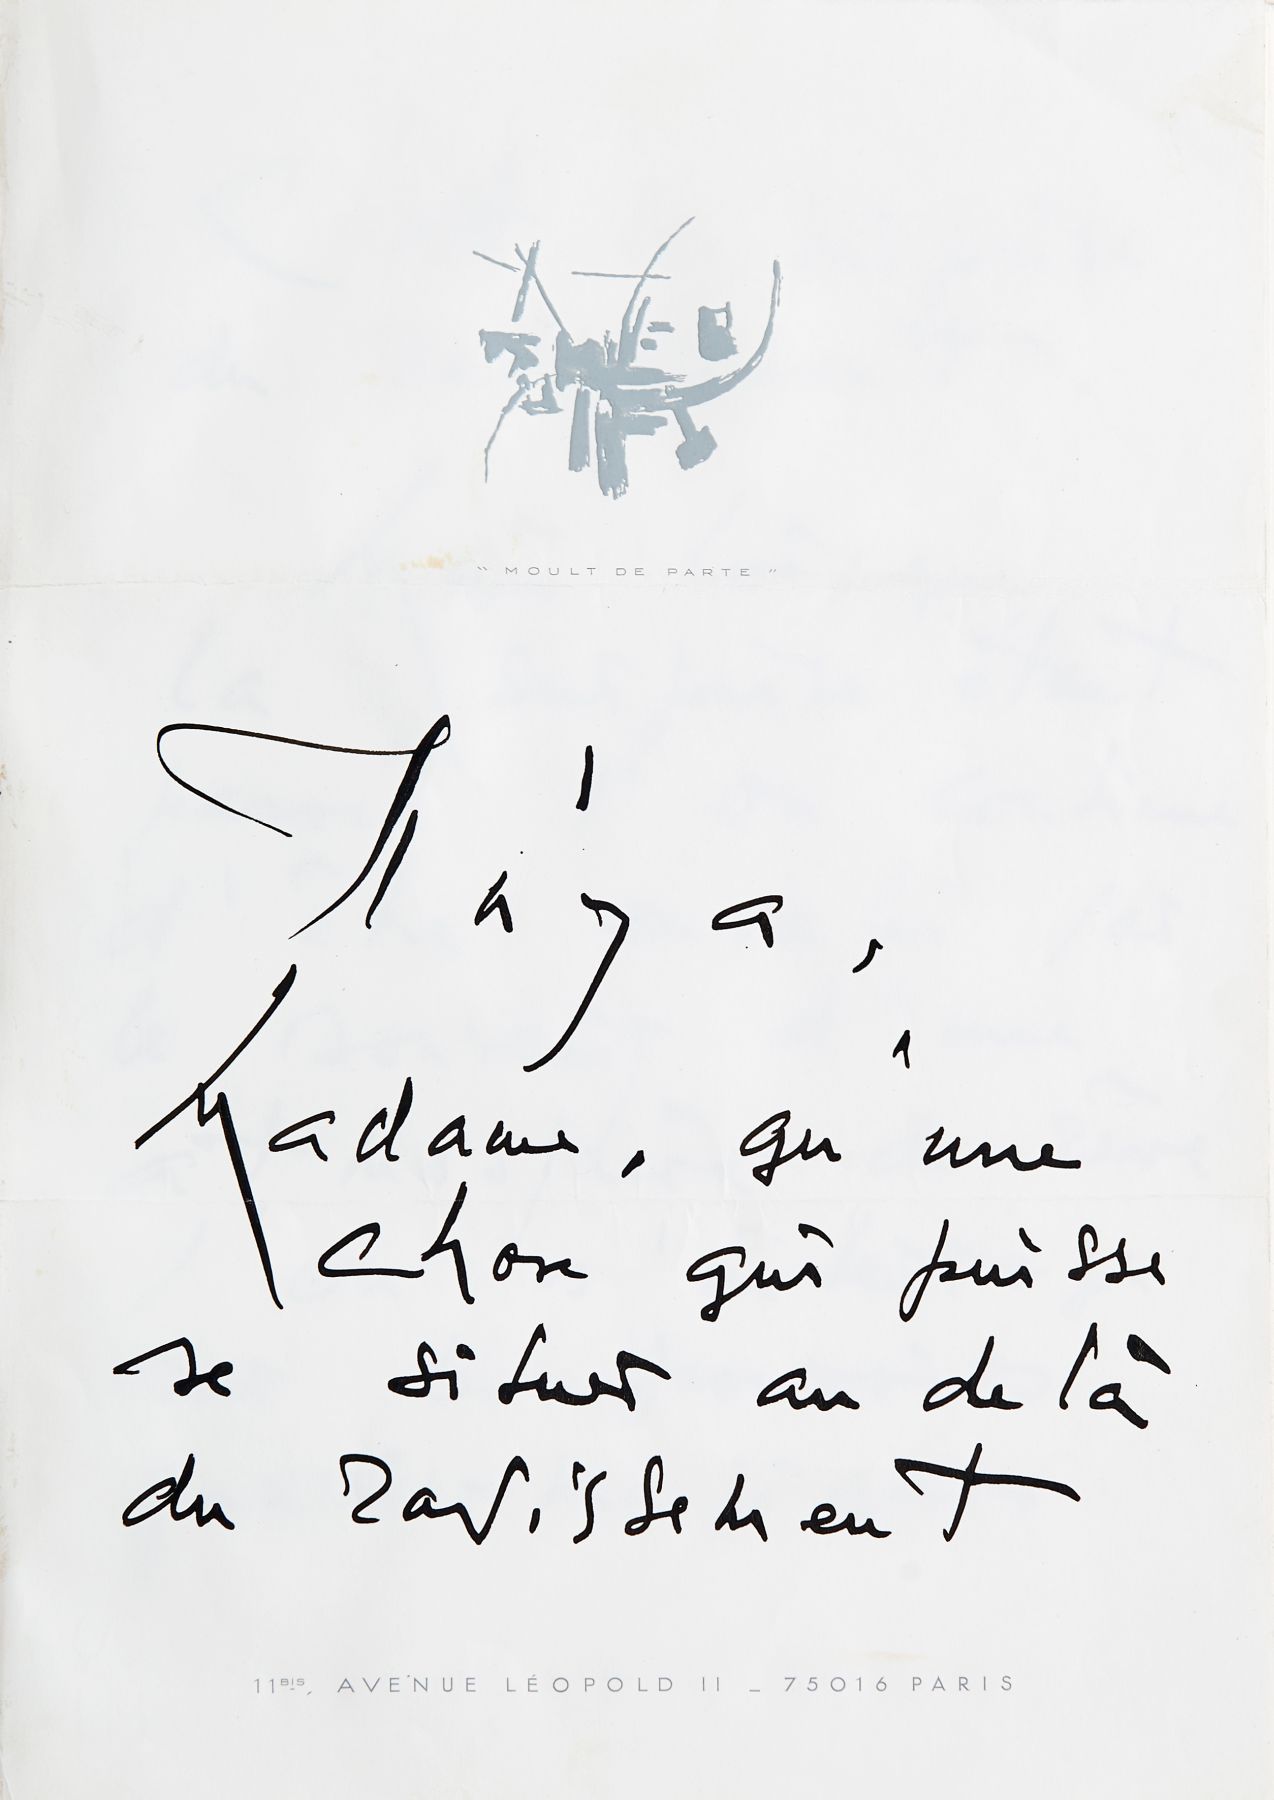 " MOULT DE PARTE "
Il n'y a,
Madame, qu'une
chose qui puisse
se situer au delà
du ravissement
11BIS, AVENUE LÉOPOLD II _ 75016 PARIS